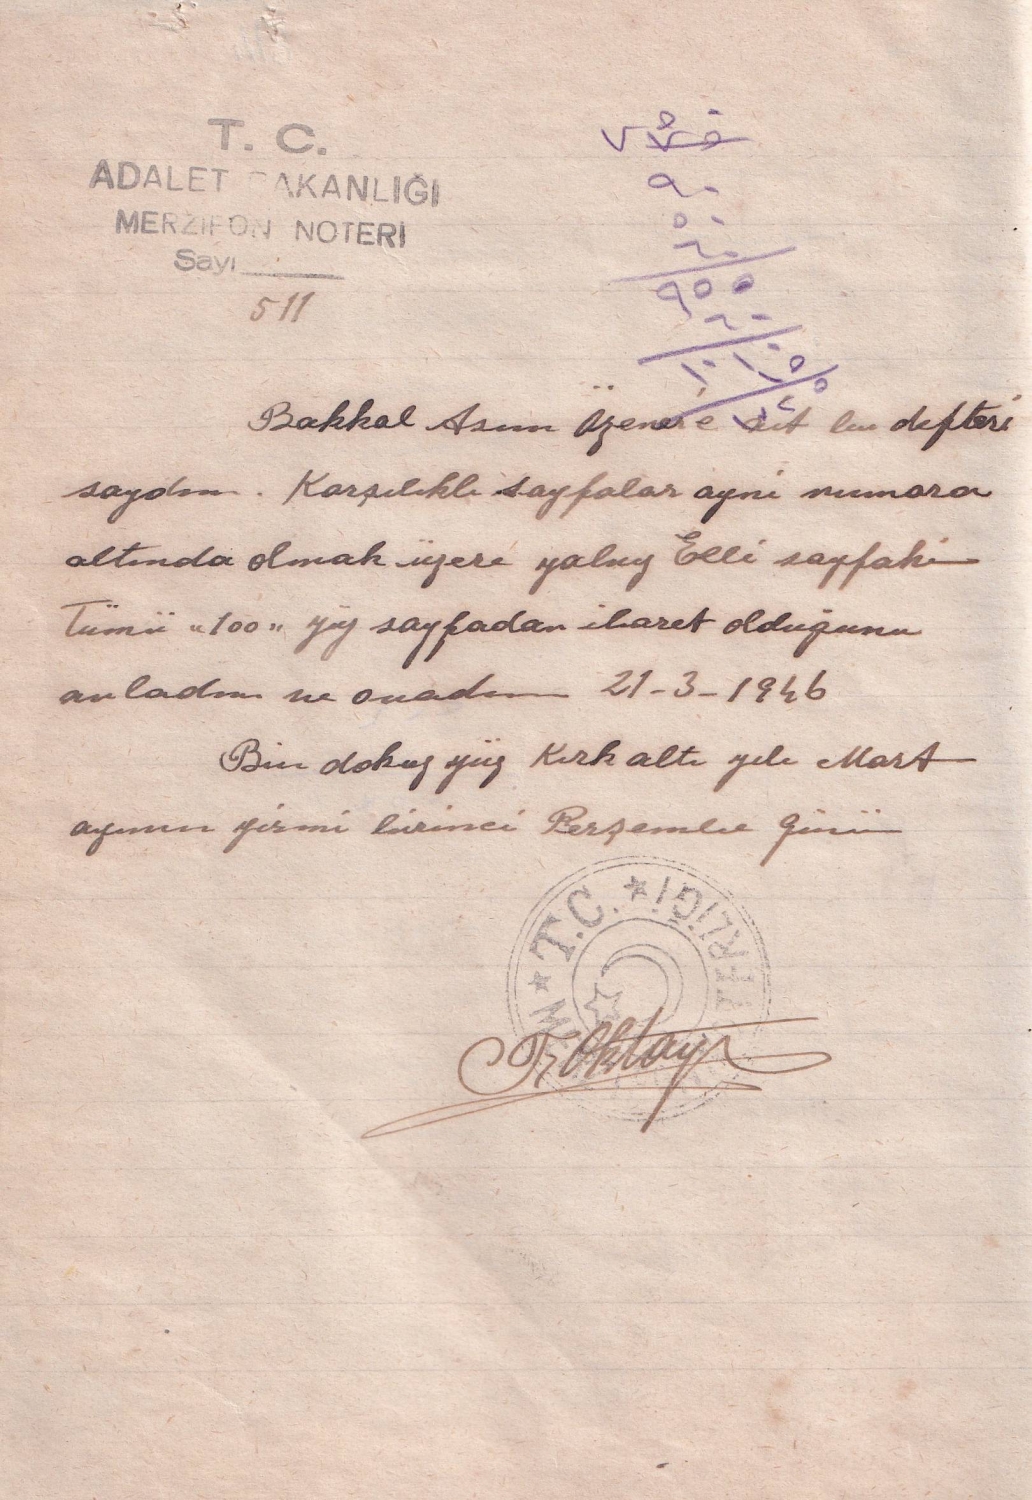 T. C.
ADALET BAKANLIĞI
MERZİFON NOTERİ
Sayı
511
Bakkal Asım Özener'e ait bu defteri
saydım. Karşılıklı sayfalar ayni numara
altında olmak üzere yalnız Elli sayfaki
Tümü "100" yüz sayfadan ibaret olduğunu
anladım ve onadım 21-3-1946
Bin dokuz yüz Kırk altı yılı Mart
ayının yirmi birinci Perşembe günü
T.C.
Oktay